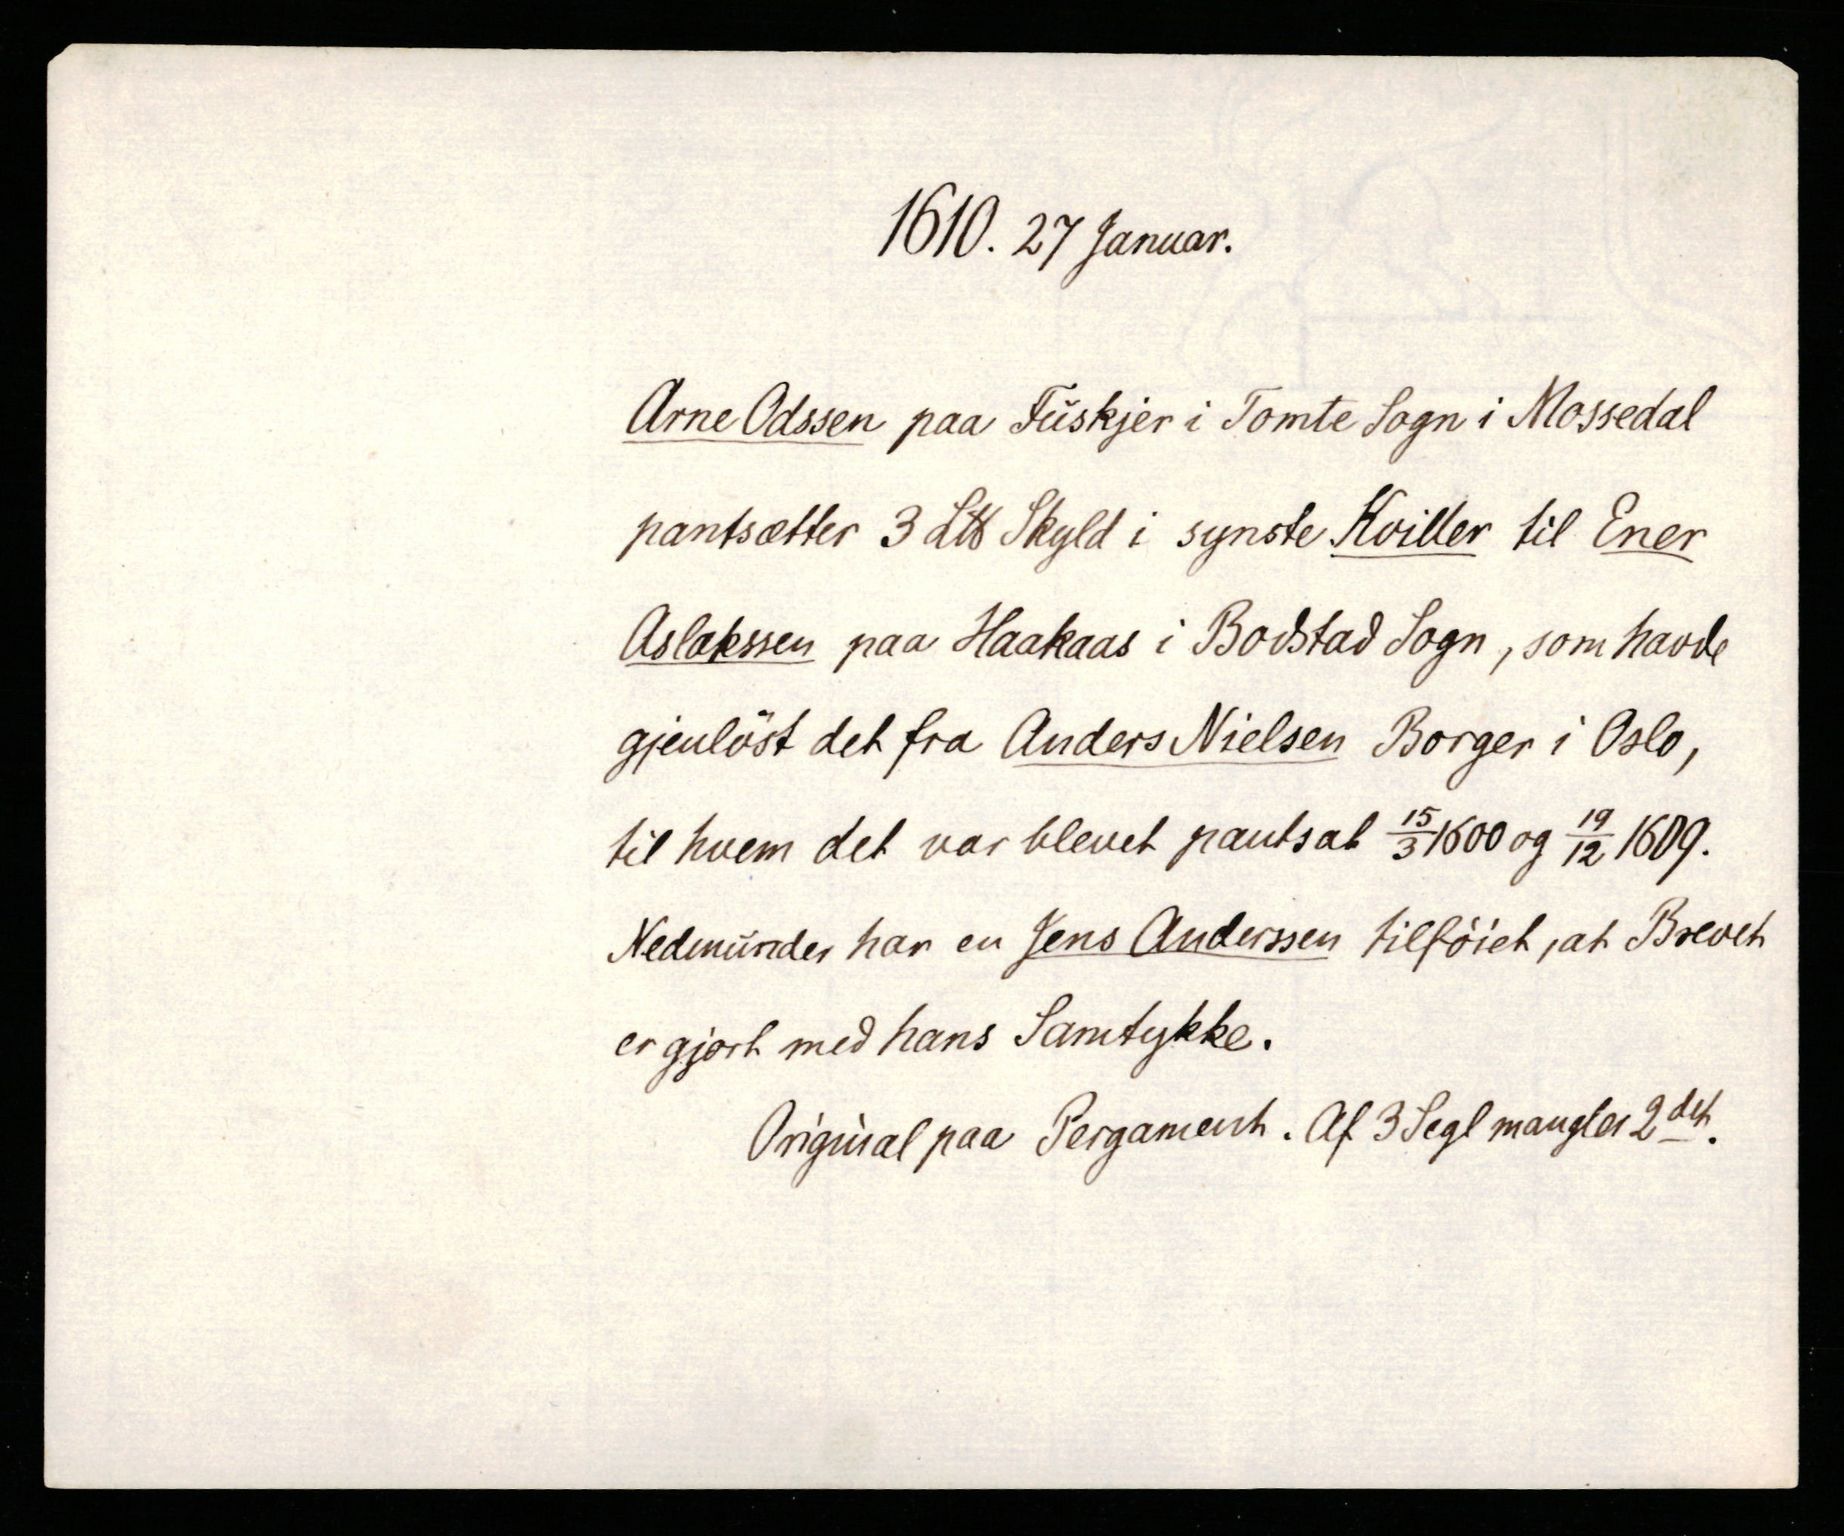 1610. 27 Januar.
Arne Odssen paa Fuskjer i Tomte Sogn i Mossedal
pantsætter 3 L℔ Skyld i synste Kviller til Ener
Aslakssen paa Haakaas i Bodstad Sogn, som havde
gjenlöst det fra Anders Nielsen Borger i Oslo,
til hvem det var blevet pantsat 15/3 1600 og 19/12 1609.
Nedenunder har en Jens Anderssen tilföiet, at Brevet
er gjort med hans Samtykke.
Original paa Pergament. Af 3 Segl mangler 2det.